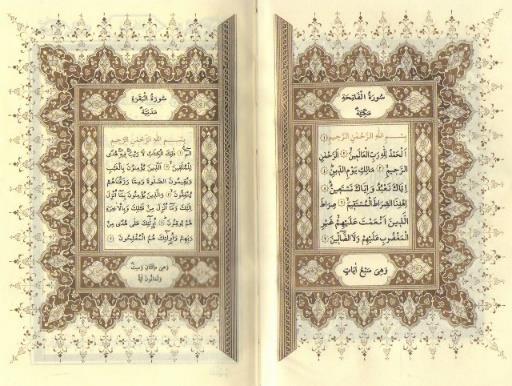 سورة الفاتحة
مكية
بسم الله الرحمن الرحيم
الحمد لله رب العالمين ۝ الرحمن
الرحيم ۝ مالك يوم الدين ۝
إياك نعبد وإياك نستعين ۝
اهدنا الصراط المستقيم ۝ صراط
الذين أنعمت عليهم غير
المغضوب عليهم ولا الضالين ۝
وهي سبع آيات
سورة البقرة
مدنية
بسم الله الرحمن الرحيم
الم ۝ ذلك الكتاب لا ريب فيه هدى
للمتقين ۝ الذين يؤمنون بالغيب
ويقيمون الصلوة ومما رزقناهم
ينفقون ۝ والذين يؤمنون بما أنزل
إليك وما أنزل من قبلك وبالآخرة
هم يوقنون ۝ أولئك على هدى من
ربهم وأولئك هم المفلحون ۝
وهي مائتان وست
وثمانون آية